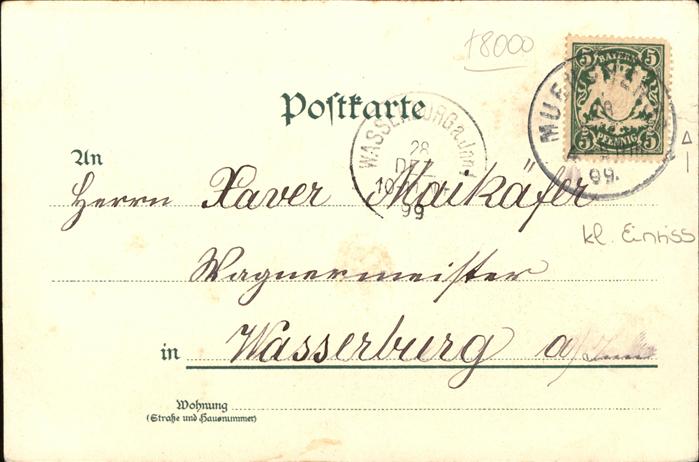 +8000
5 BAYERN 5
5 PFENNIG 5
MUENCHEN
99.
Postkarte
WASSERBURG a. Inn.
28
DEZ
10
99
An
Herrn Xaver Maikäfer
kl. Einriss
Wagnermeister
in Wasserburg a/Inn
Wohnung
(Straße und Hausnummer)